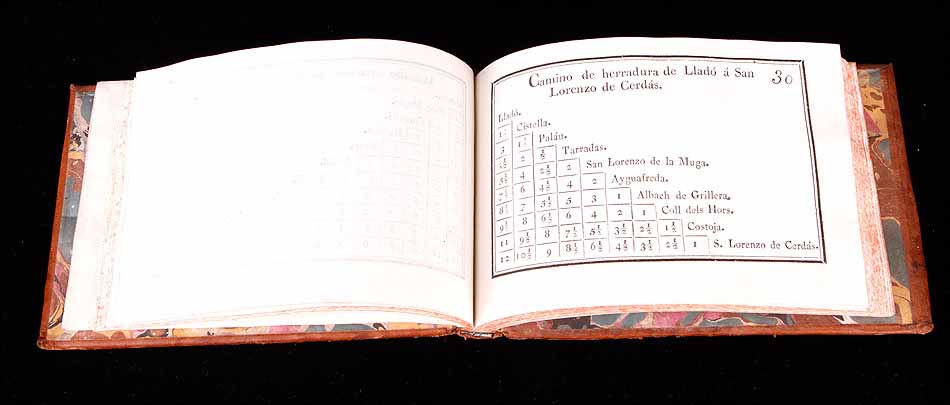 Camino de herradura de Lladó á San 30
Lorenzo de Cerdás.
Lladó.
1½ Cistella.
3 1½ Paláu.
3½ 2 ½ Tarradas.
5½ 4 2½ 2 San Lorenzo de la Muga.
7½ 6 4½ 4 2 Ayguafreda.
8½ 7 5½ 5 3 1 Albach de Grillera.
9½ 8 6½ 6 4 2 1 Coll dels Hors.
11 9½ 8 7½ 5½ 3½ 2½ 1½ Costoja.
12 10½ 9 8½ 6½ 4½ 3½ 2½ 1 S. Lorenzo de Cerdás.